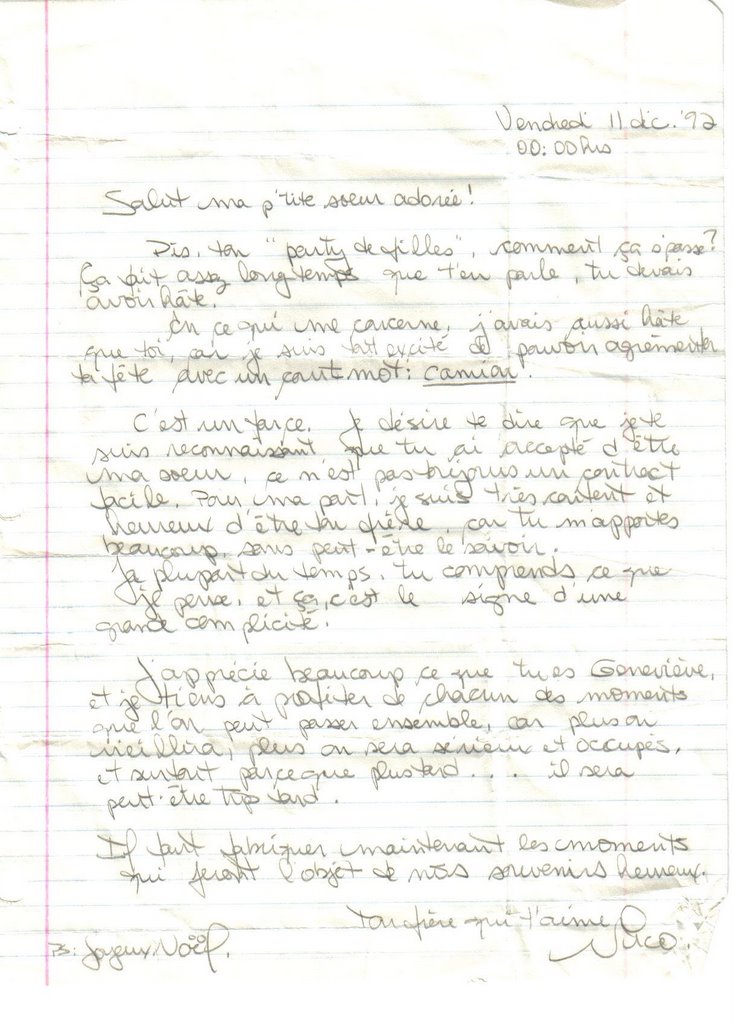 Vendredi 11 déc. '92
00:00 hrs
Salut ma p'tite soeur adorée!
Dis, ton "party de filles", comment ça s'passe?
Ça fait assez longtemps que t'en parle, tu devais
avoir hâte.
En ce qui me concerne, j'avais aussi hâte
que toi, car je suis tout excité de pouvoir agrémenter
ta fête avec un court mot: camion.
C'est un farce. Je désire te dire que je te
suis reconnaissant que tu ai accepté d'être
ma soeur, ce n'est pas toujours un contract
facile. Pour ma part, je suis très content et
heureux d'être ton frère, car tu m'apportes
beaucoup, sans peut-être le savoir.
La plupart du temps, tu comprends ce que
je pense, et ça, c'est le signe d'une
grande complicité.
J'apprécie beaucoup ce que tu es Geneviève,
et je tiens à profiter de chacun des moments
que l'on peut passer ensemble, car plus on
vieillira, plus on sera sérieux et occupés,
et surtout parce que plus tard.... il sera
peut-être trop tard.
Il faut fabriquer maintenant les moments
qui feront l'objet de nos souvenirs heureux.
Ton frère qui t'aime
Nico.
PS: Joyeux Noël.